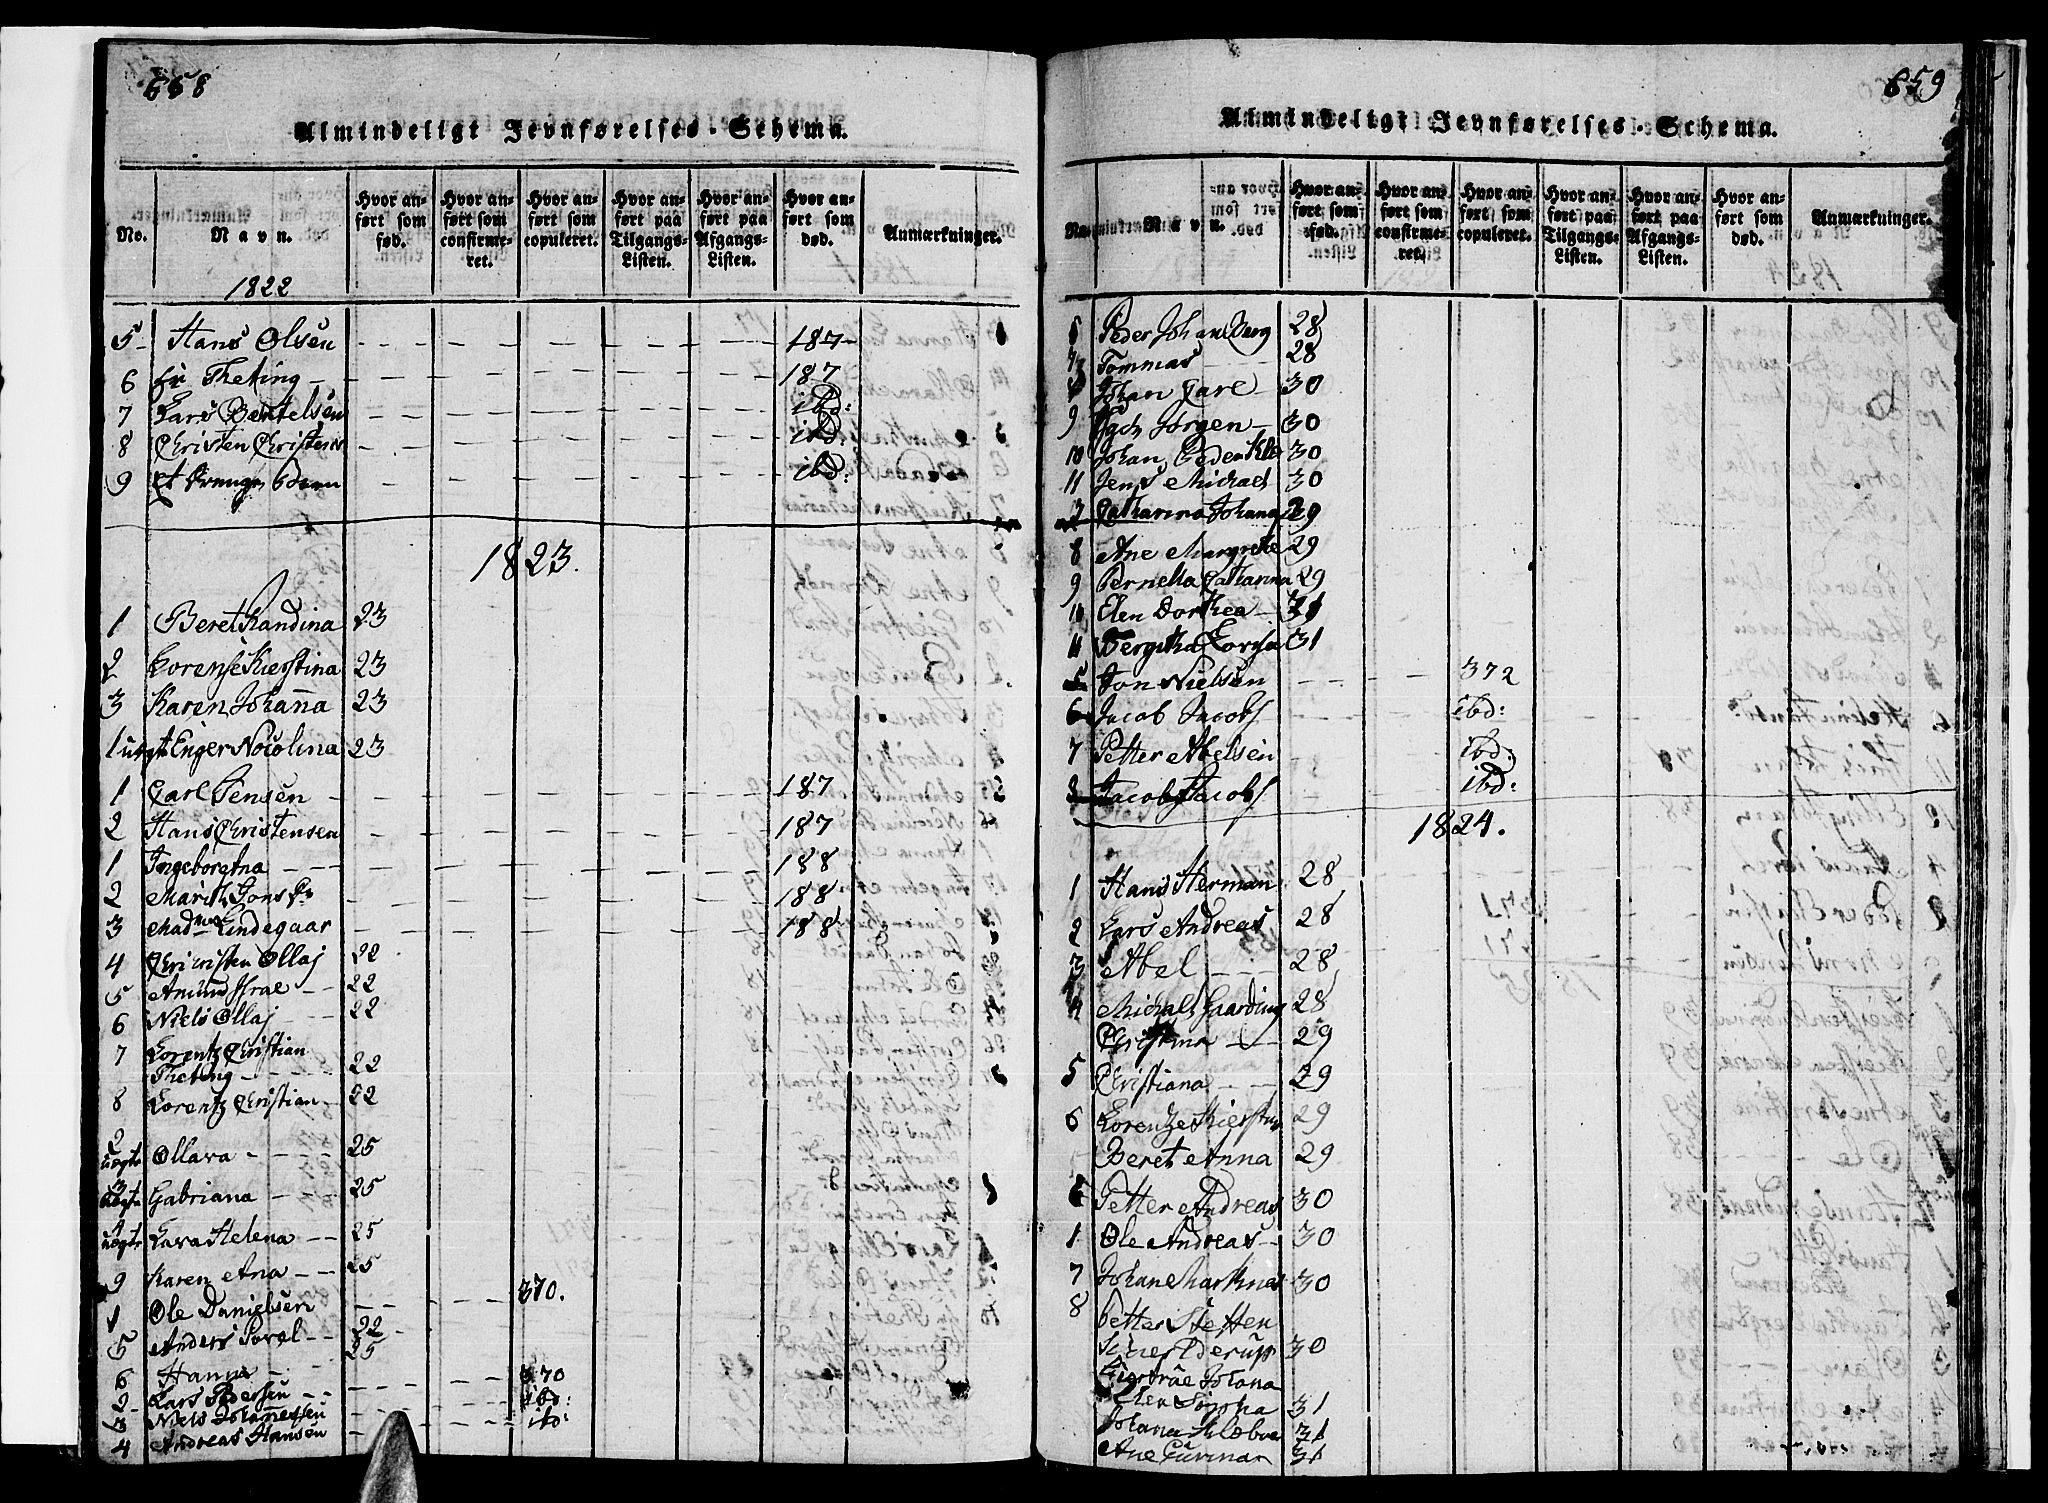 658
Almindeligt Jevnførelses-Schema.
No.
Navn.
Hvor anført som fød.
Hvor anført som confirmeret.
Hvor anført som copuleret.
Hvor anført paa Tilgangs-Listen.
Hvor anført paa Afgangs-Listen.
Hvor anført som død.
Anmærkninger.
1822
5 Hans Olsen 187
6 Theting 187
7 Lars Bentelsen ibd:
8 Christen Christens ibd:
9 ibd:
1823.
1 Beret Randina 23
2 Lorense Kierstina 23
3 Karen Johanna 23
1 uægt Enger Nocolina 23
1 Carl Jensen 187
2 Hans Christensen 187
1 Ingeboretna 188
2 Marith Jons 188
3 Madme Lindegaar 188
4 Ollaj 22
5 Amund Israe 22
6 Niels Ollaj 22
7 Lorentz Christian
Theting 22
8 Lorentz Christian 22
2
uægte Ollava 25
3
uægte Gabriana 25
4
uægte Lava Helena 25
9 Karen Ana 25
1 Ole Danielsen 370.
5 Anders Povel 22
6 Hanna 25
2 Lars Pedersen 370
3 Niels Johannessen ibd:
4 Andreas Hansen ibd:
659
Almindeligt Jevnførelses-Schema.
No.
Navn.
Hvor anført som fød.
Hvor anført som confirmeret.
Hvor anført som copuleret.
Hvor anført paa Tilgangs-Listen.
Hvor anført paa Afgangs-Listen.
Hvor anført som død.
Anmærkninger.
6 Peder Johan Berg 28
7 Tommas 28
8 Johan Carl 30
9 Jørgen 30
10 Johan Peder 30
11 Jens Michael 30
7 Catharina Johana 29
8 Ane Margrethe 29
9 Pernella Catharina 29
10 Elen Dorthea 31
11 31
5 Jon Nielsen 372
6 Jacob Jacobs ibd:
7 Petter Abelsen ibd:
8 Jacob Jacobs ibd:
1824.
1 Hans Herman 28
2 Lars Andreas 28
3 Abel 28
4 Michal Gaarding 28
Christina 29
5 Christiana 29
6 Lorentze Kierstin 29
Beret Anna 29
6 Petter Andreas 30
1 Ole Andreas 30
7 Johan Marthnas 30
8 Petter Steffen
Schielderup 30
Johana
Elen 31
Johana 31
Ane 31